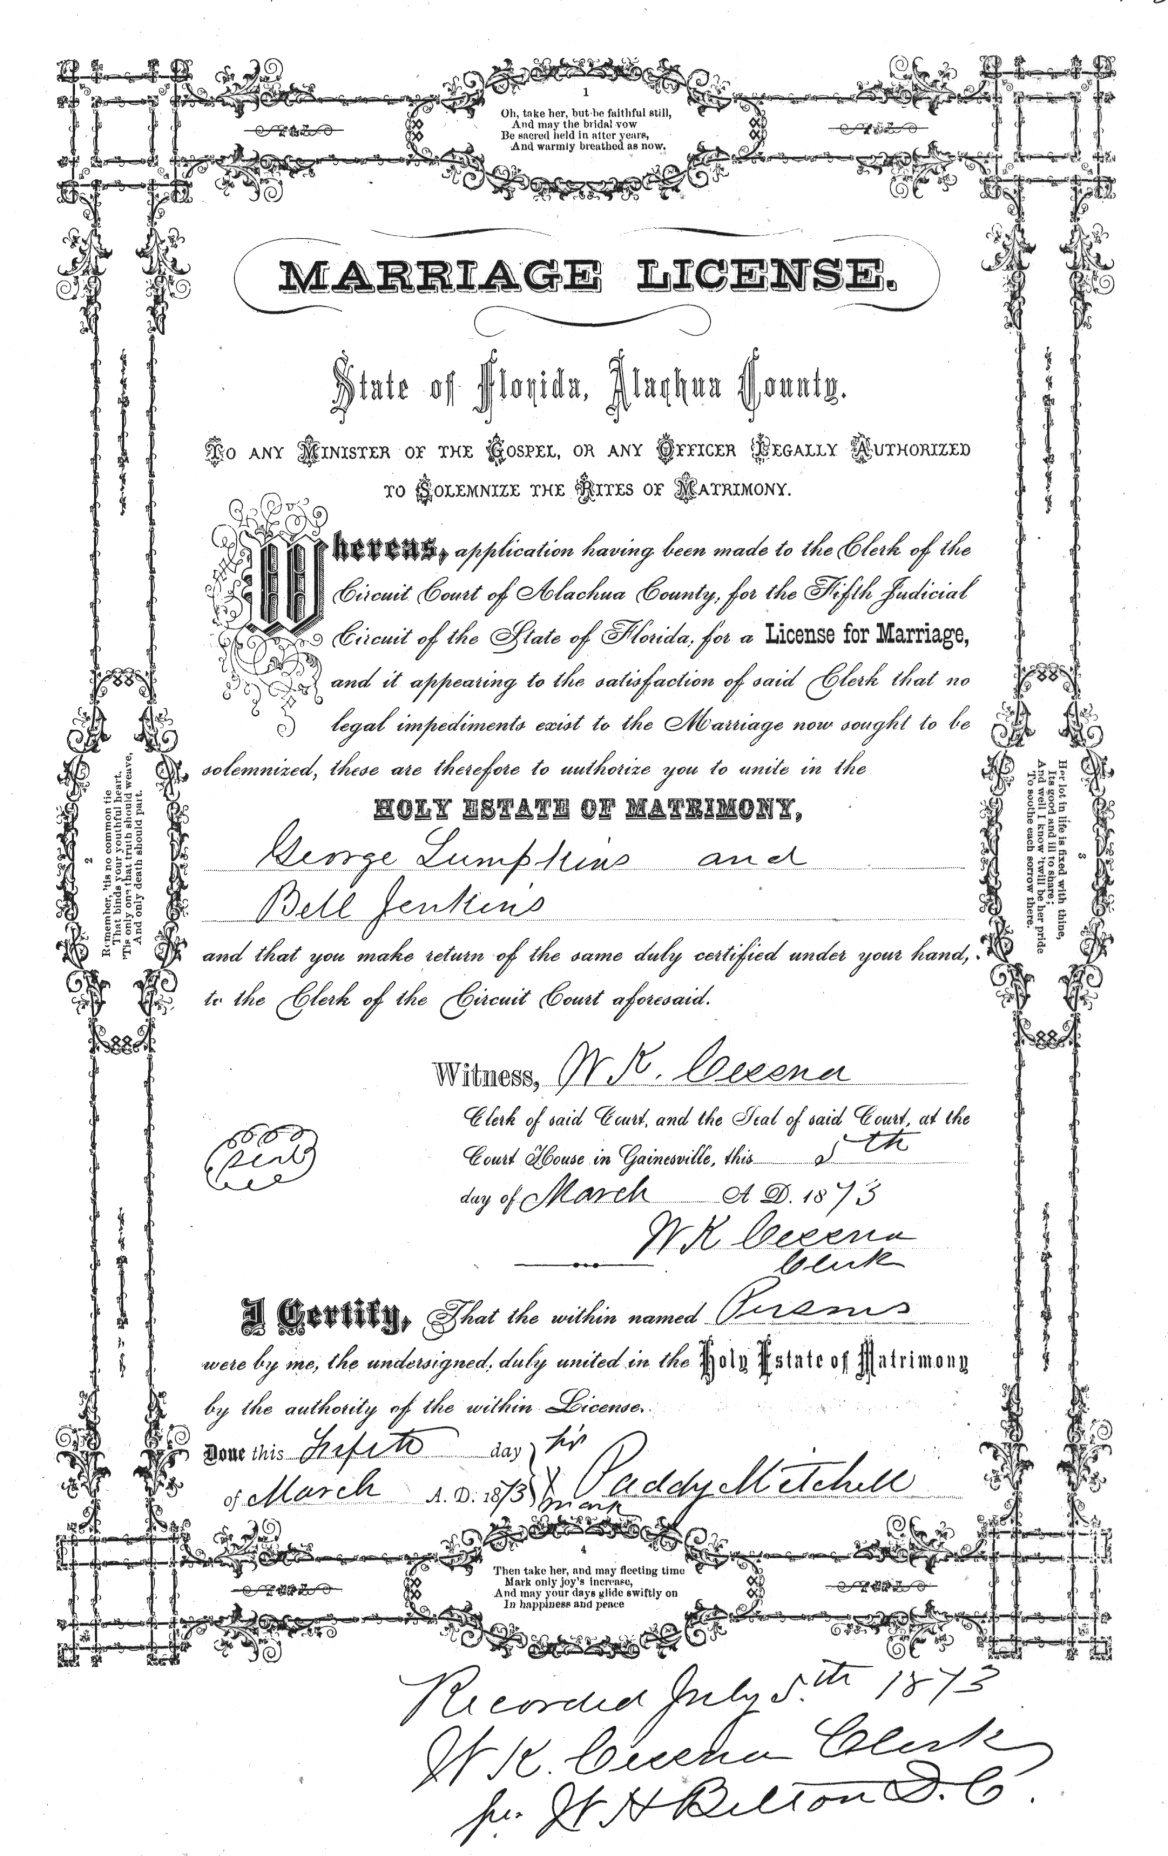 1
Oh, take her, but be faithful still,
And may the bridal vow
Be sacred held in after years,
And warmly breathed as now.
MARRIAGE LICENSE.
State of Florida, Alachua County.
TO ANY MINISTER OF THE GOSPEL, OR ANY OFFICER LEGALLY AUTHORIZED
TO SOLEMNIZE THE RITES OF MATRIMONY.
Whereas, application having been made to the Clerk of the
Circuit Court of Alachua County, for the Fifth Judicial
Circuit of the State of Florida, for a License for Marriage,
and it appearing to the satisfaction of said Clerk that no
legal impediments exist to the Marriage now sought to be
solemnized, these are therefore to authorize you to unite in the
HOLY ESTATE OF MATRIMONY,
George Lumpkins and
Bell Jenkins
and that you make return of the same duly certified under your hand,
to the Clerk of the Circuit Court aforesaid.
2
Remember, 'tis no common tie
That binds your youthful heart,
'Tis only one that truth should weave,
And only death should part.
3
Her lot in life is fixed with thine,
Its good and ill to share;
And well I know 'twill be her pride
To soothe each sorrow there.
Witness, W K. Cessna
Clerk of said Court, and the Seal of said Court, at the
Court House in Gainesville, this 5th
day of March A D. 1873
Seal
W K Cessna
Clerk
I Certify, That the within named Persons
were by me, the undersigned, duly united in the Holy Estate of Matrimony
by the authority of the within License.
Done this day his
of March A. D. 1873 X Paddy Mitchell
mark
4
Then take her, and may fleeting time
Mark only joy's increase,
And may your days glide swiftly on
In happiness and peace
Recorded July 5th 1873
W K. Cessna Clerk
per W H Belton D. C.